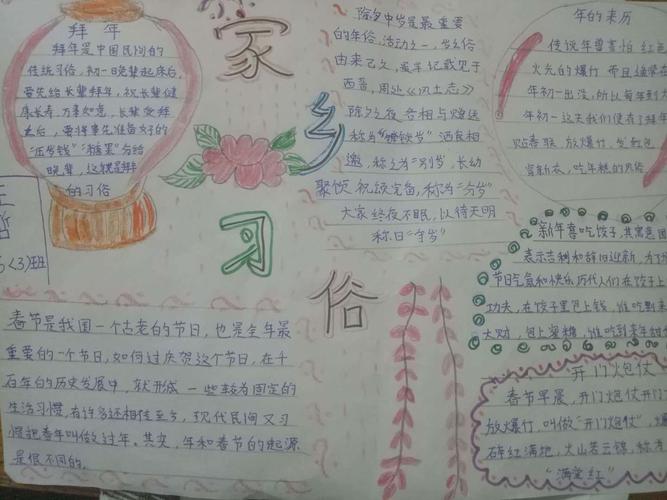 拜年
拜年是中国民间的
传统习俗,初一晚辈起床后,
要先给长辈拜年,祝长辈健
康长寿,万事如意,长辈受拜
之后,要将事先准备好的
"压岁钱""糖果"分给
晚辈,这就是拜
的习俗
家
乡
习
俗
<3)班
除夕守岁是最重要
的年俗活动之一,守岁俗
由来已久,最早记载见于
西晋,周处《风土志》
除夕之夜各相与赠送
称为"馈岁"酒食相
邀,称之为"别岁",长幼
聚饮祝颂完备,称为"分岁"
大家终夜不眠,以待天明
称曰"守岁"
年的来历
传说年兽害怕红色
火光的爆竹 而且通常在
年初一出没,所以每年到大
年初一这天我们便有了拜年
贴春联,放爆竹,发红包
穿新衣,吃年糕的风俗
新年喜吃饺子,其寓意团
表示吉利和辞旧迎新,为了
节日气氛和快乐历代人们在饺子
功夫,在饺子里包上钱,谁吃到来
大财,包上蜜糖,谁吃到来年甜
春节是我国一个古老的节日,也是全年最
重要的一个节日,如何过庆贺这个节日,在千
百年的历史发展中,就形成一些较为固定的
生活习惯,有许多还相传至今,现代民间又习
惯把春年叫做过年。其实,年和春节的起源
是很不同的。
开门炮仗
春节早晨,开门炮仗开门
放爆竹,叫做"开门炮仗",爆
碎红满地,火山若云锦,称为
"满堂红"